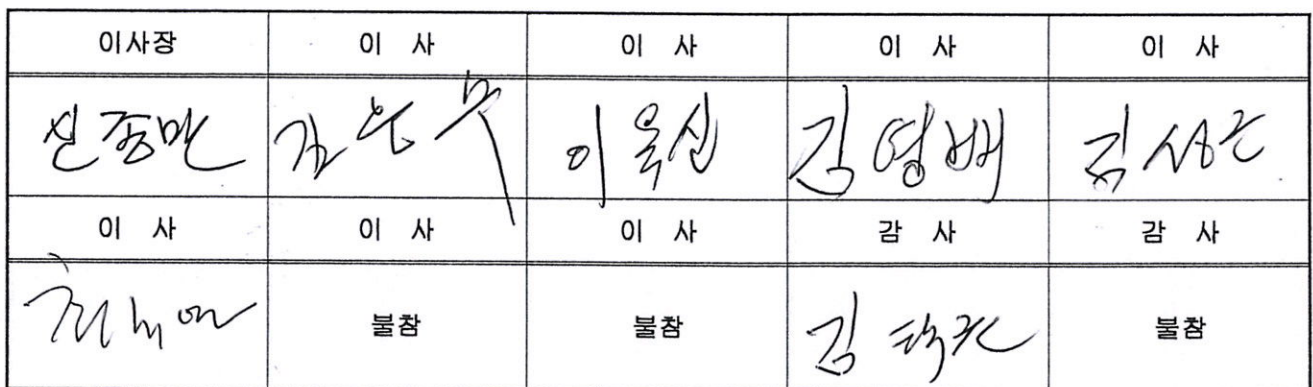 이사장 이 사 이 사 이 사 이 사
신종만 이옥신 김영배
이 사 이 사 이 사 감 사 감 사
불참 불참 불참